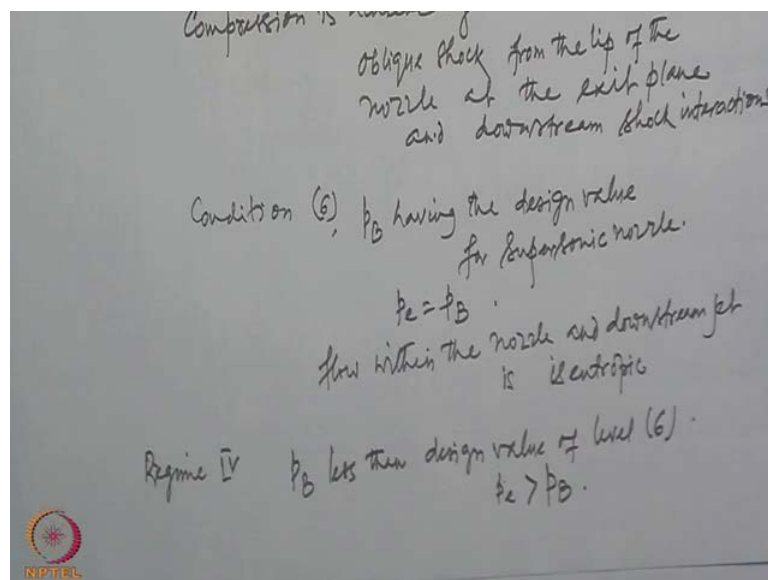 Compression is
oblique shock from the lip of the
nozzle at the exit plane
and downstream shock interactions
Condition (6), p_B having the design value
for supersonic nozzle.
p_e = p_B .
flow within the nozzle and downstream jet
is isentropic
Regime IV p_B less than design value of level (6).
p_e > p_B .
NPTEL